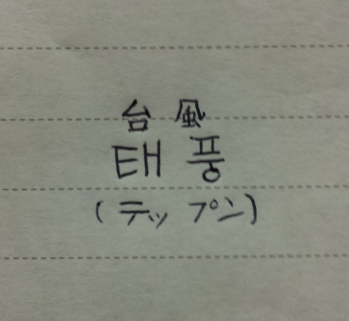 台風
태풍
(テップン)